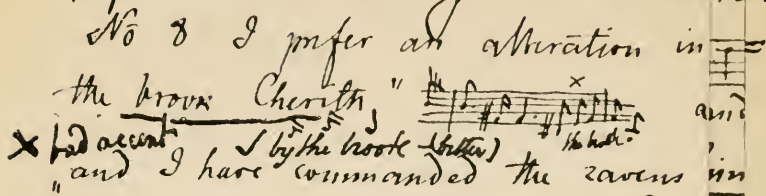 No 8 I prefer an alteration in
the brook Cherith,"
× the brook. and
× bad accent by the brook (better)
"and I have commanded the ravens in